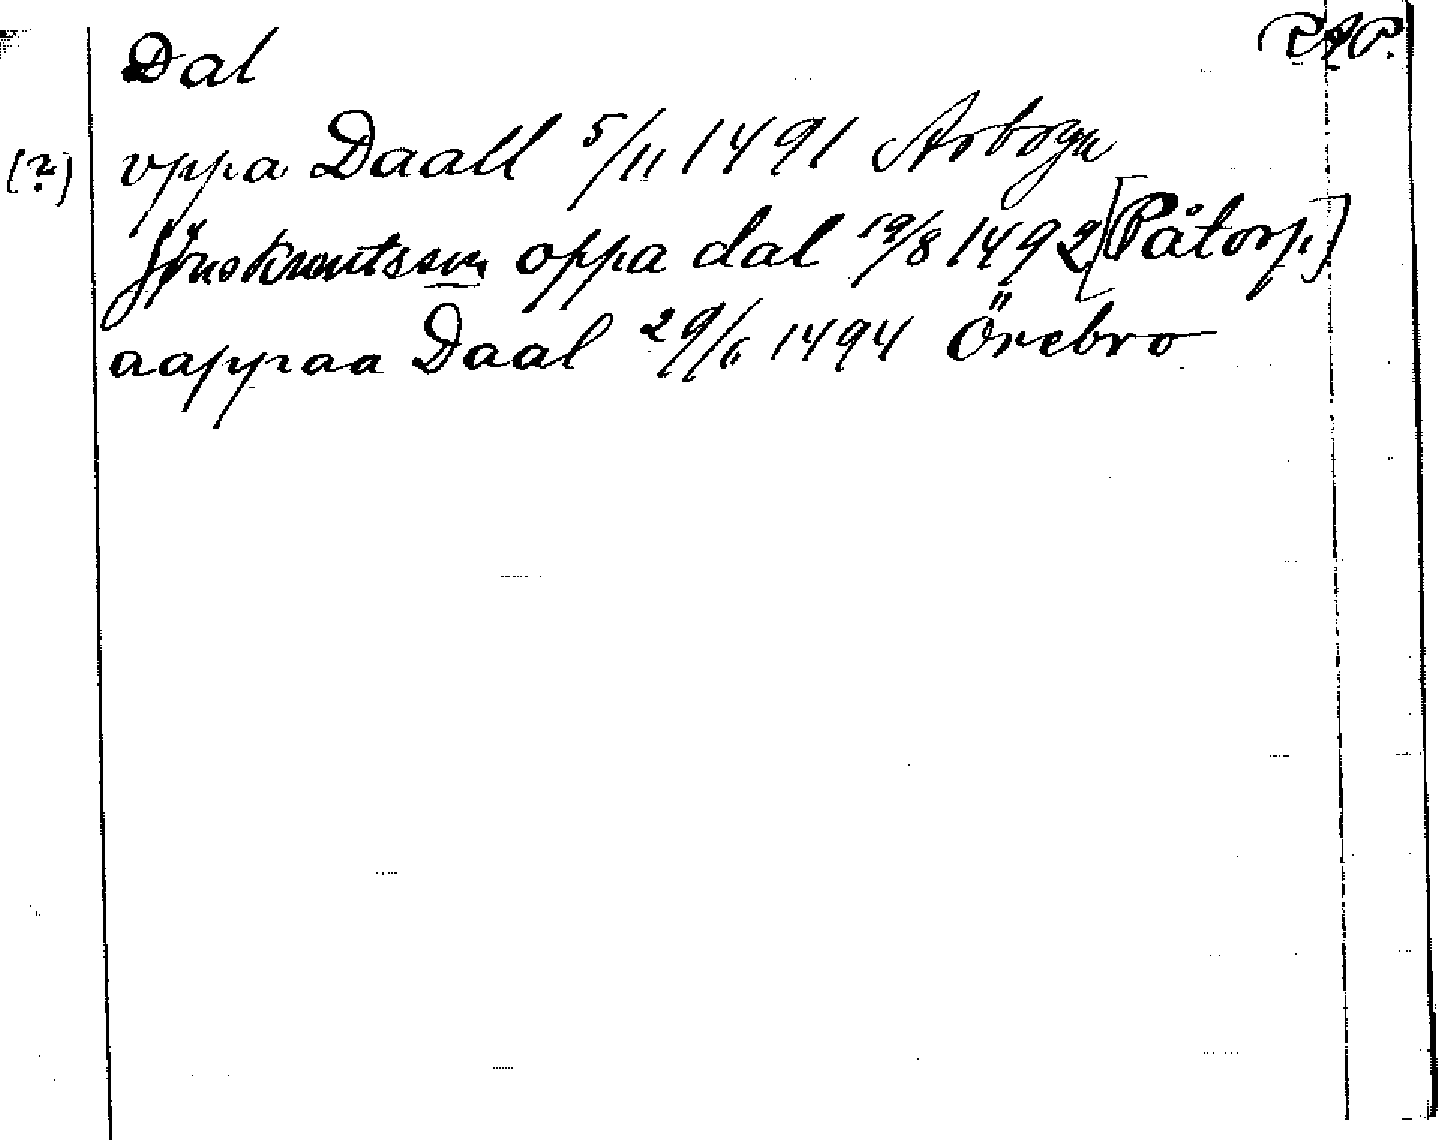 Dal RAP.
(?) uppa Daall 5/11 1491 Arboga
Jönsknutsson oppa dal 19/8 1492 [Påtorp.]
aappaa Daal 29/6 1494 Örebro